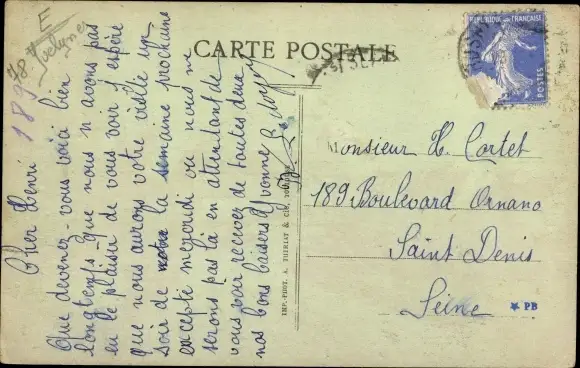 CARTE POSTALE
RÉPUBLIQUE FRANÇAISE
POSTES
E
78
189
Cher Henri
Que devenez-vous voici bien
longtemps que nous n'avons pas
eu le plaisir de vous voir j'espère
que nous aurons votre visite un
soir de la semaine prochaine
excepté mercredi où nous ne
serons pas là en attendant de
vous voir recevez de toutes deux
nos bons baisers Yvonne
Monsieur H. Cortet
189 Boulevard Ornano
Saint Denis
Seine
★ PB
IMP.-PHOT. A. THIRIAT & CIE,